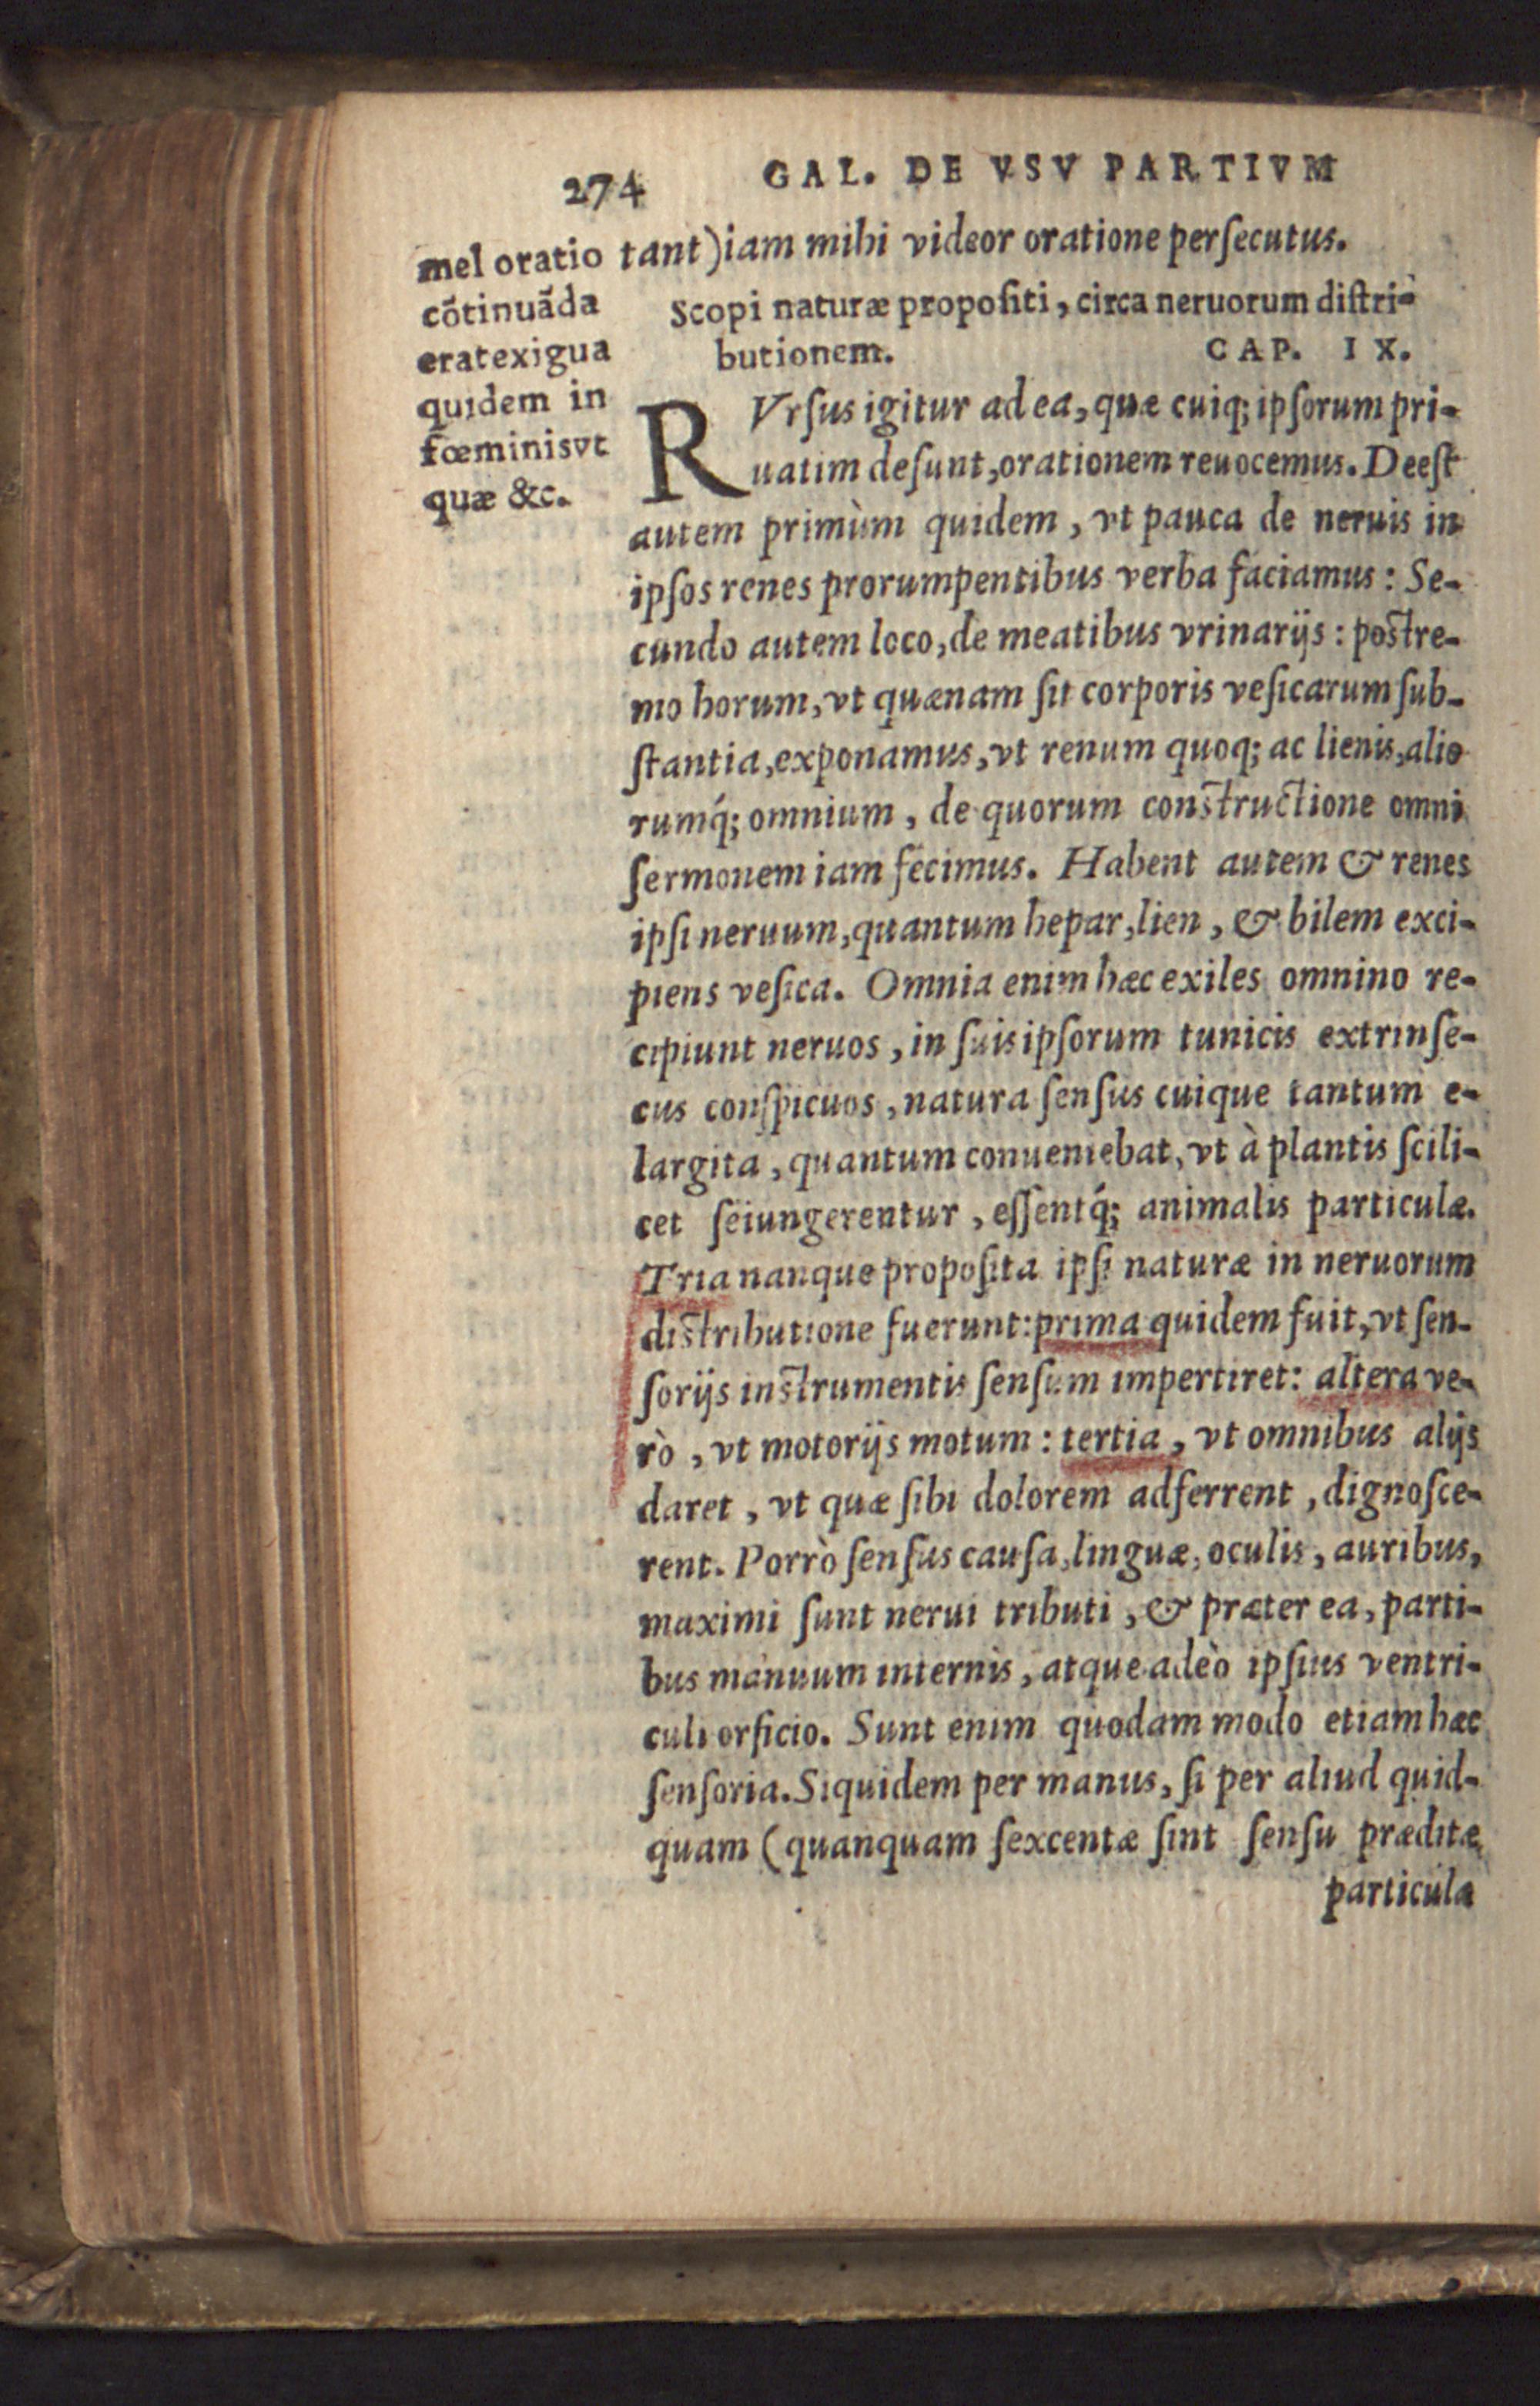 274 GAL. DE VSV PARTIVM
mel oratio
cõtinuãda
erat exigua
quidem in
fœminis vt
quæ &c.
tant) iam mihi videor oratione persecutus.
Scopi naturæ propositi, circa neruorum distri-
butionem. CAP. IX.
RVrsus igitur ad ea, quæ cuiq; ipsorum pri-
uatim desunt, orationem reuocemus. Deest
autem primùm quidem, vt pauca de neruis in
ipsos renes prorumpentibus verba faciamus: Se-
cundo autem loco, de meatibus vrinarijs: postre-
mo horum, vt quænam sit corporis vesicarum sub-
stantia, exponamus, vt renum quoq; ac lienis, alio
rumq́; omnium, de quorum constructione omni
sermonem iam fecimus. Habent autem & renes
ipsi neruum, quantum hepar, lien, & bilem exci-
piens vesica. Omnia enim hæc exiles omnino re-
cipiunt neruos, in suis ipsorum tunicis extrinse-
cus conspicuos, natura sensus cuique tantum e-
largita, quantum conueniebat, vt à plantis scili-
cet seiungerentur, essentq́; animalis particulæ.
Tria nanque proposita ipsi naturæ in neruorum
distributione fuerunt: prima quidem fuit, vt sen-
sorijs instrumentis sensum impertiret: altera ve-
rò, vt motorijs motum: tertia, vt omnibus alijs
daret, vt quæ sibi dolorem adferrent, dignosce-
rent. Porrò sensus causa, linguæ, oculis, auribus,
maximi sunt nerui tributi, & præter ea, parti-
bus manuum internis, atque adeò ipsius ventri-
culi orficio. Sunt enim quodam modo etiam hæc
sensoria. Siquidem per manus, si per aliud quid-
quam (quanquam sexcentæ sint sensu præditæ
particula